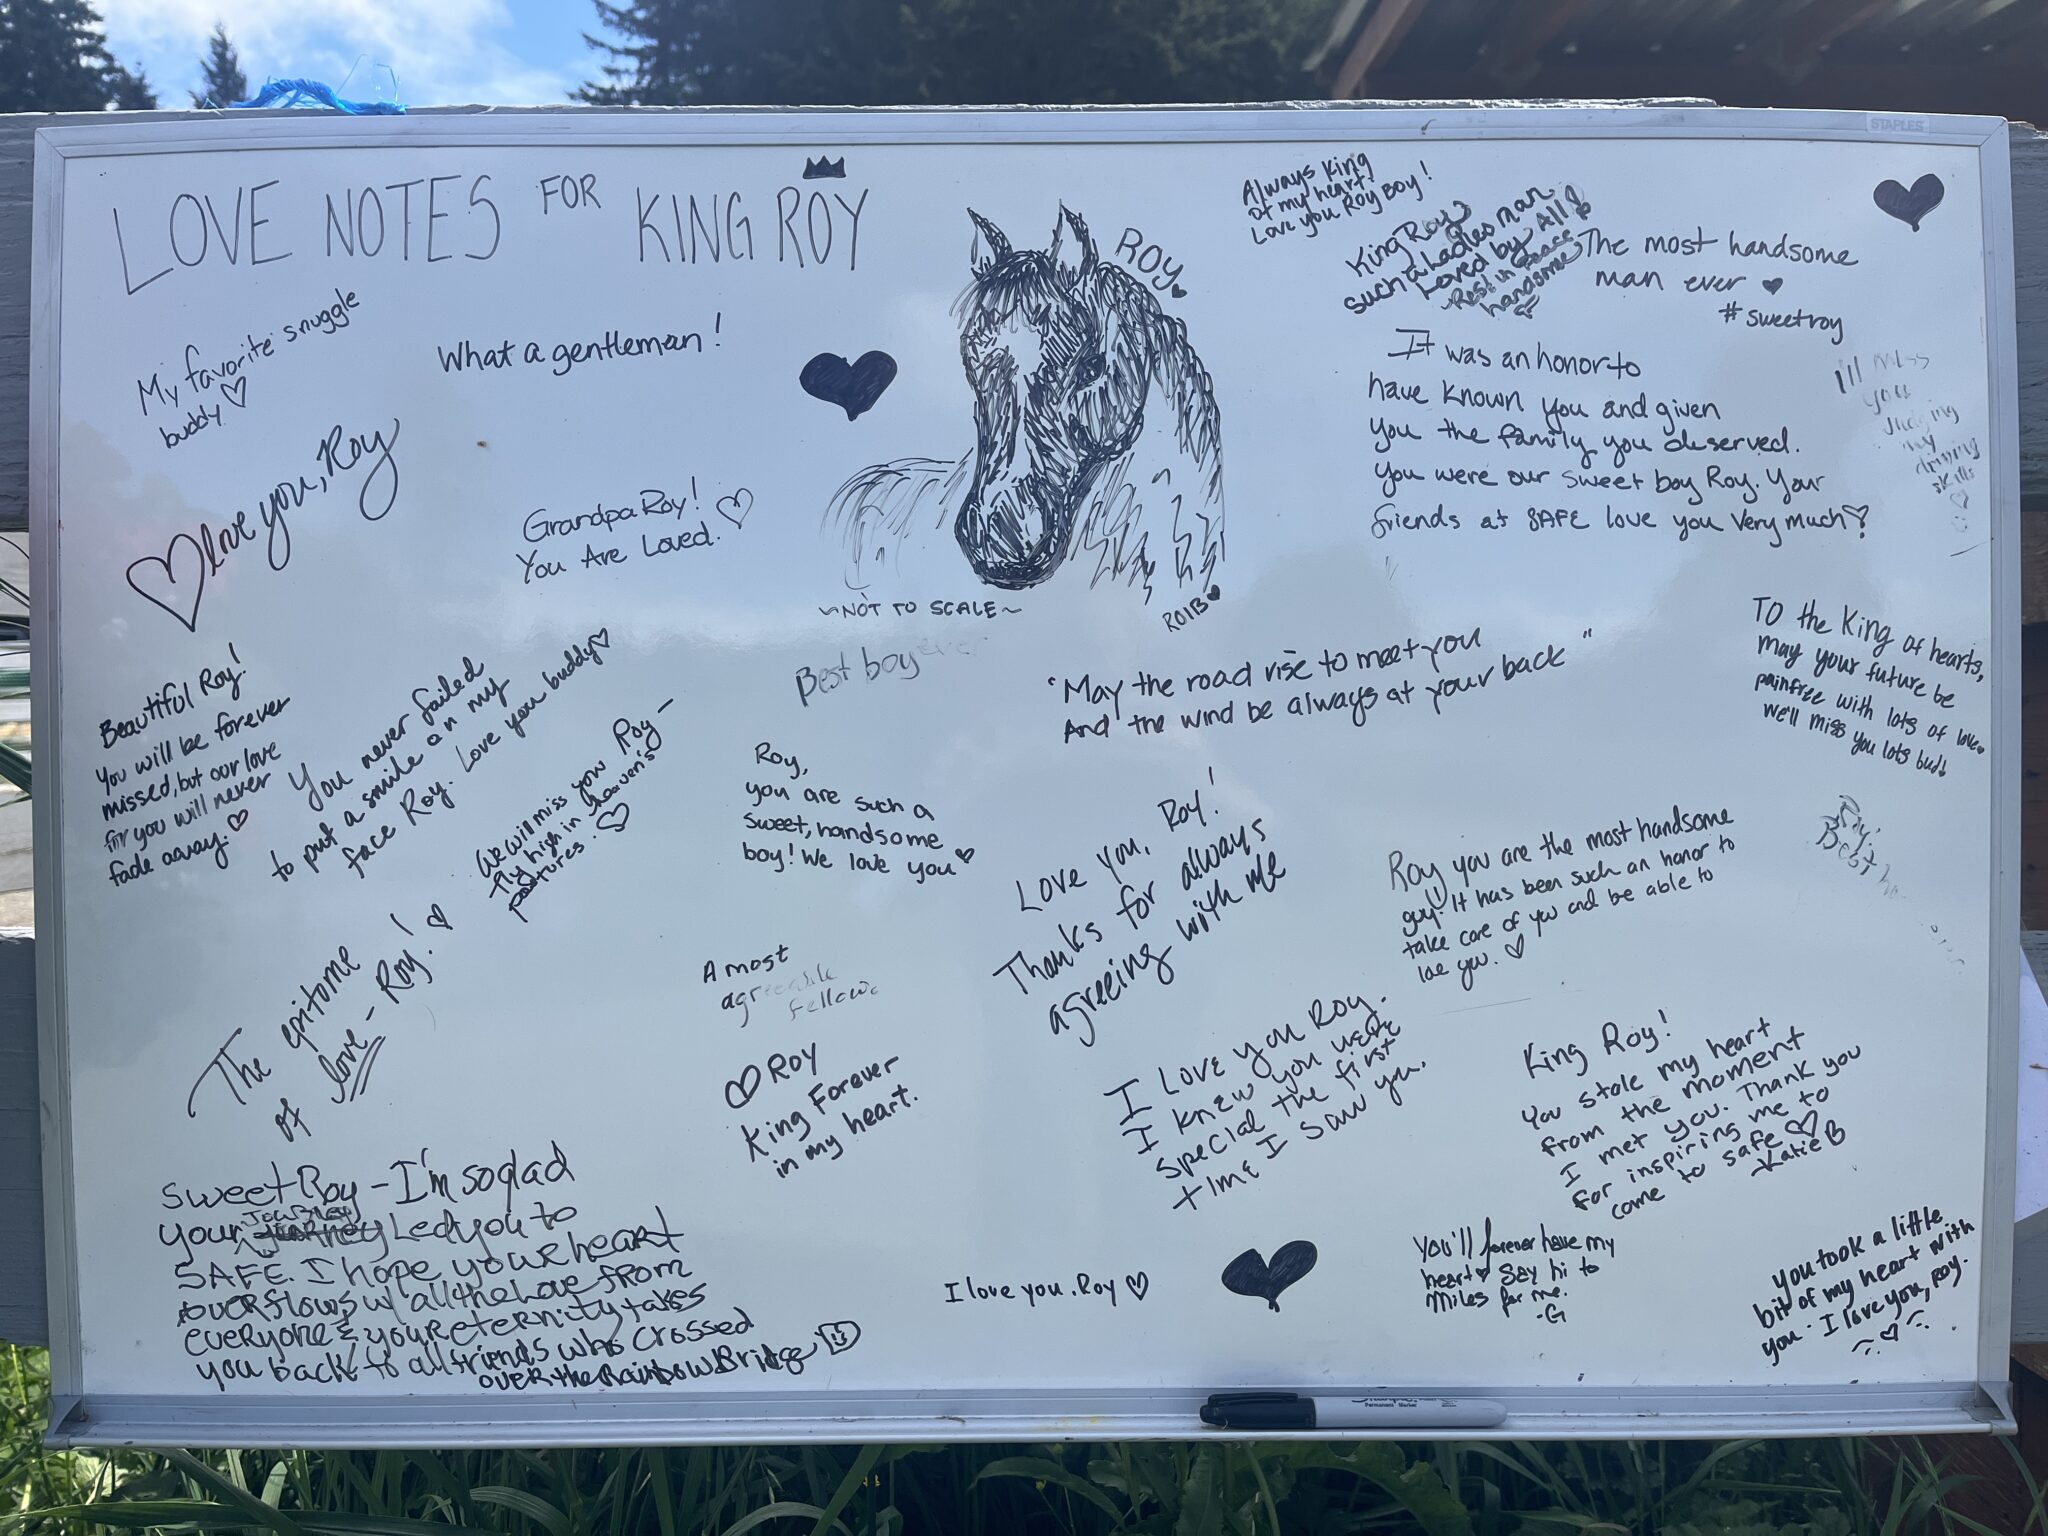 STAPLES
LOVE NOTES FOR KING ROY
My favorite snuggle
buddy
love you, Roy
What a gentleman!
Grandpa Roy!
You Are Loved.
ROY
~NOT TO SCALE~
Always King
of my heart!
Love you Roy Boy!
King Roy
such a Ladies man
Loved by All!
Rest in Peace
handsome
The most handsome
man ever
#sweetroy
It was an honor to
have known you and given
you the family you deserved.
You were our sweet boy Roy. Your
friends at SAFE love you very much
I'll miss
you
Judging
my
driving
skills
Beautiful Roy!
You will be forever
missed, but our love
for you will never
fade away.
You never failed
to put a smile on my
face Roy. Love you buddy
We will miss you Roy –
fly high in heaven's
pastures.
Best boy ever
"May the road rise to meet you
And the wind be always at your back"
TO the King of hearts,
may your future be
painfree with lots of love
we'll miss you lots bud!
Roy,
you are such a
sweet, handsome
boy! We love you
Love you, Roy!
Thanks for always
agreeing with me
Roy you are the most handsome
guy! It has been such an honor to
take care of you and be able to
love you.
Best
The epitome
of love – Roy!
A most
agreeable
fellow.
Roy
King Forever
in my heart.
I love you Roy.
I knew you were
special the first
time I saw you.
King Roy!
You stole my heart
from the moment
I met you. Thank you
for inspiring me to
come to safe
-Katie B
Sweet Roy – I'm so glad
your Journey Led you to
SAFE. I hope your heart
overflows w/ all the love from
everyone & your eternity takes
you back to all friends who crossed
over the Rainbow Bridge
I love you, Roy
You'll forever have my
heart Say hi to
Miles for me.
-G
You took a little
bit of my heart with
you. I love you, Roy.
Permanent Marker